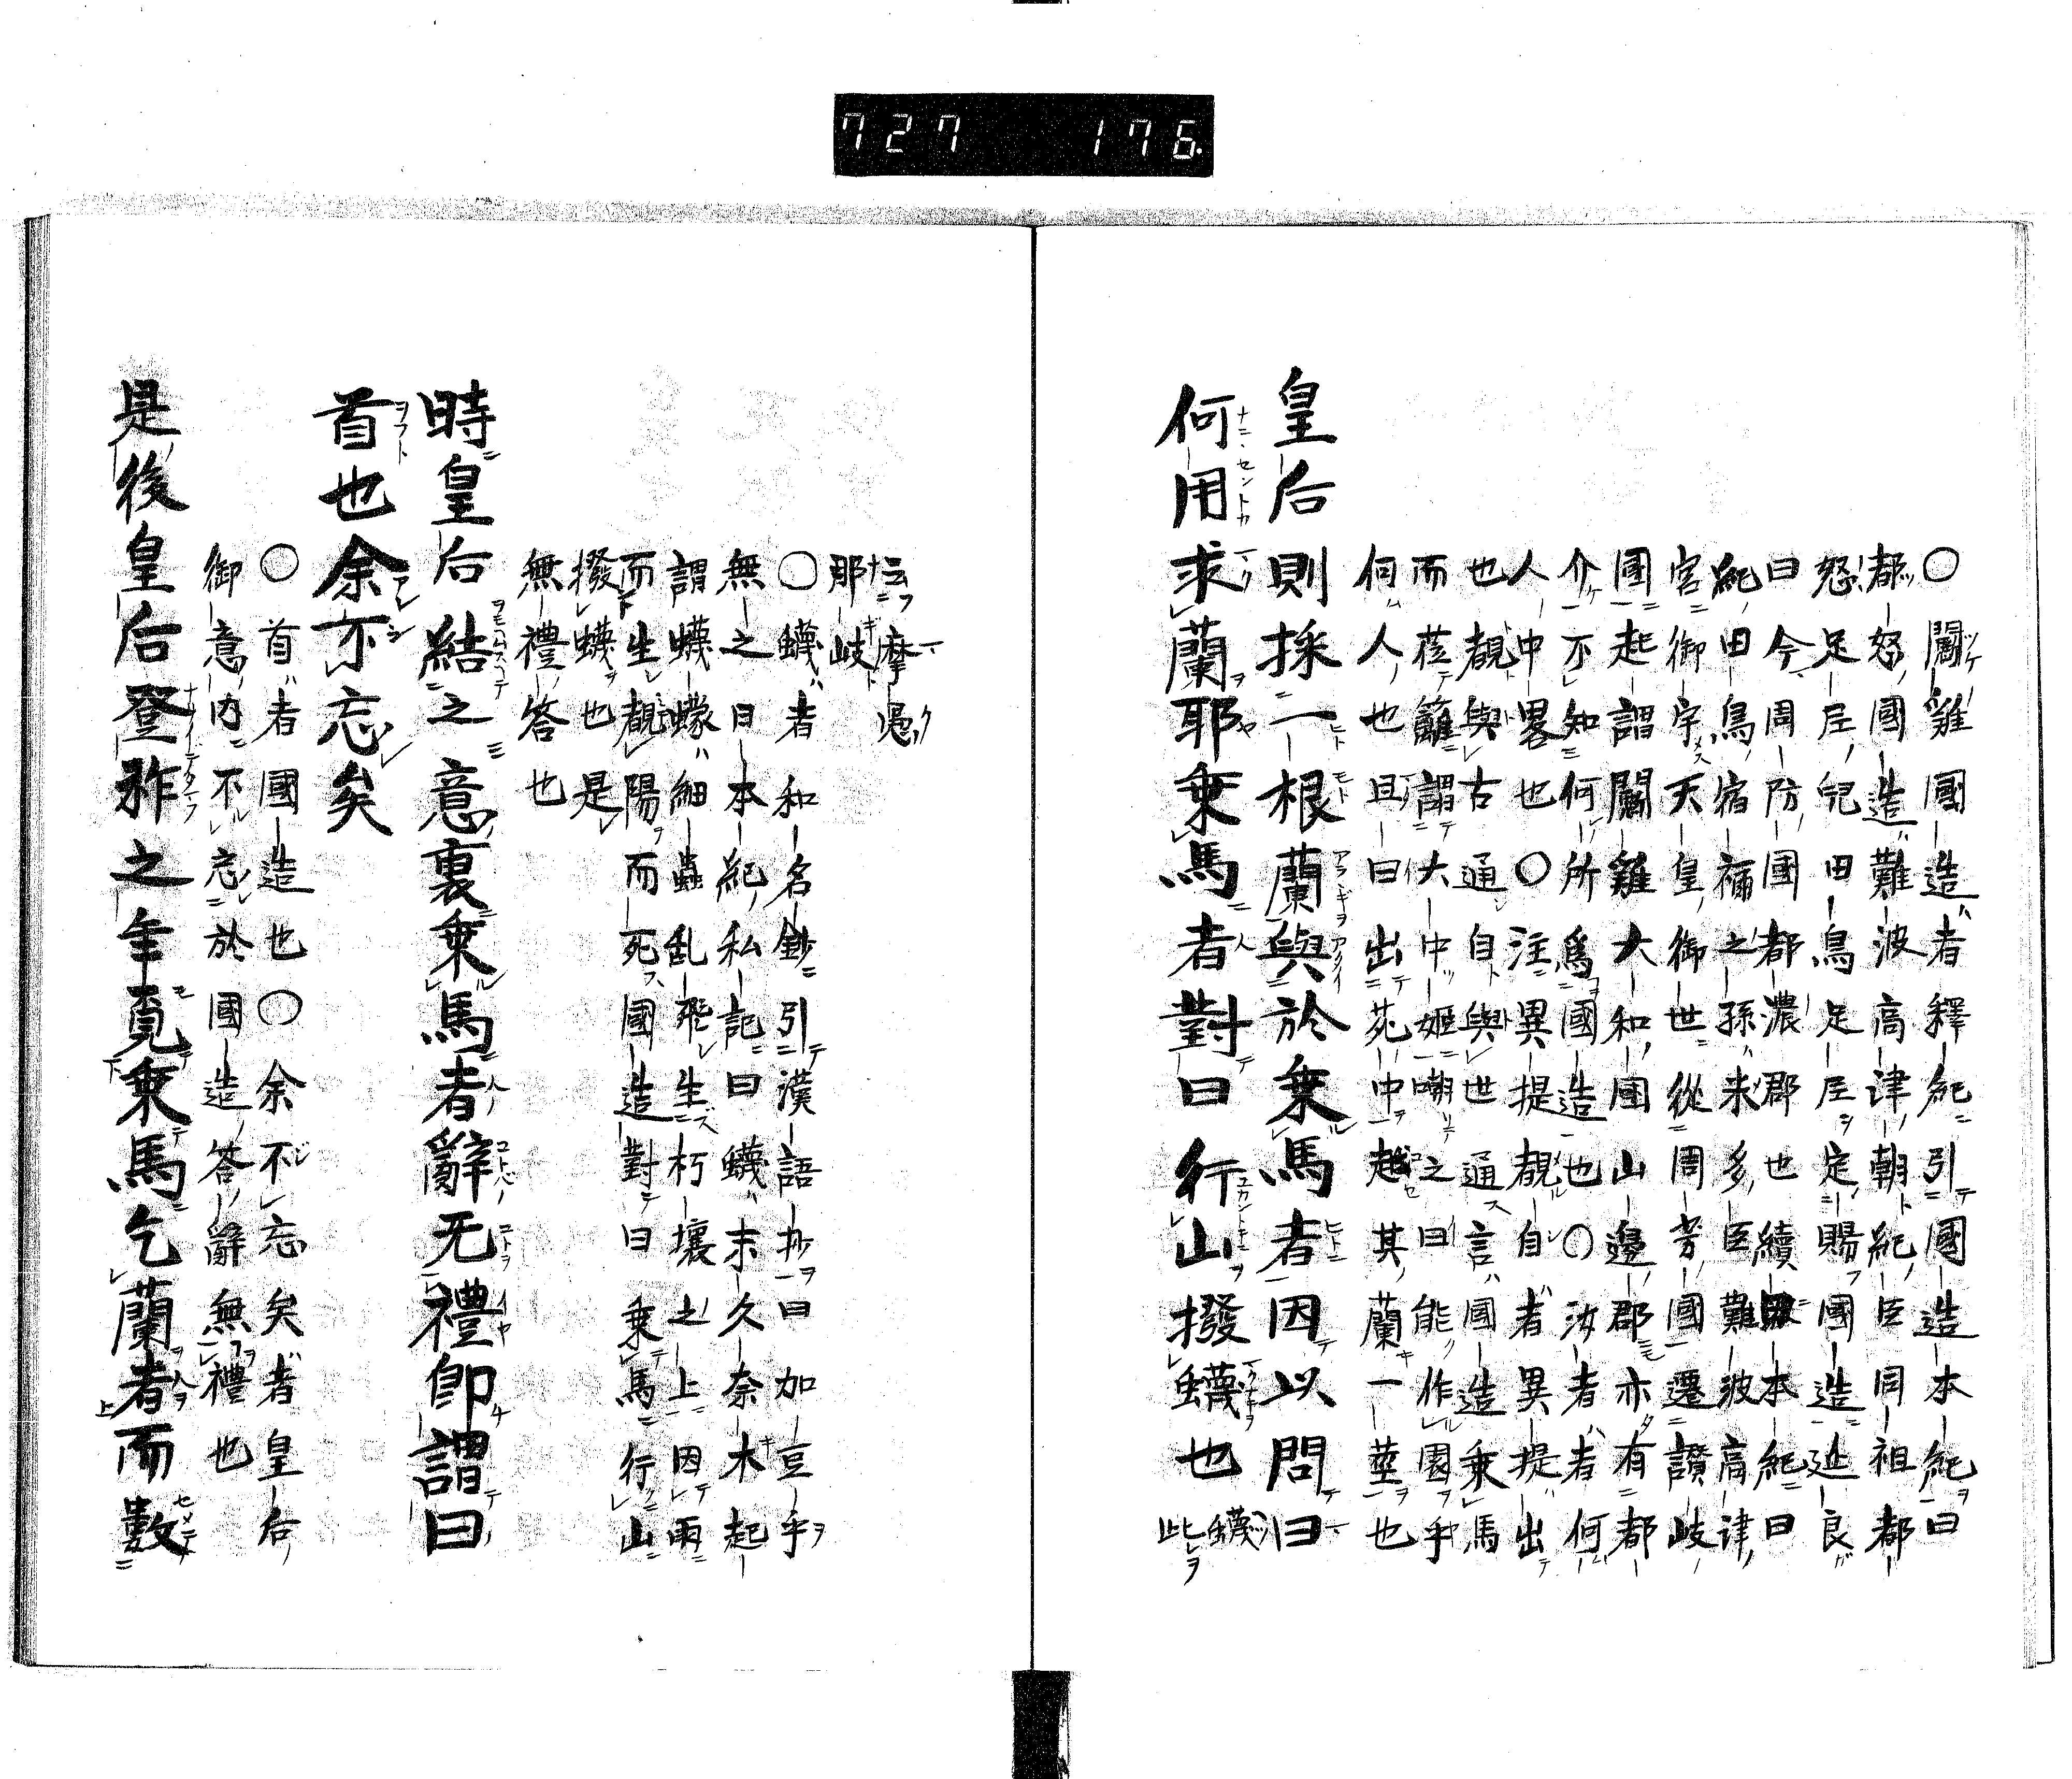 727 176
○闇雞國造者釋紀引國造本紀曰
都怒國造難波高津朝紀臣同祖都
怒足尼兒田鳥足尼定賜國造延良
曰今周防國都濃郡也續日本紀曰
紀田鳥宿禰之孫米多臣難波高津
宮御宇天皇御世從周芳國遷讃岐
國起謂闇雞大和國山邊郡亦有都
介不知何所爲國造也○汝者者何
人中畧也○注異提覩自者異提出
也覩與古通自與世通言國造乗馬
而莅籬謂大中姬嘲之曰能作園乎
何人也且曰出茺中越其蘭一莖也
皇后則採一根蘭與於乗馬者因以問曰
何用求蘭耶乗馬者對曰行山撥蠛也 蠛此
云摩愚
那岐
○蠛者和名鈔引漢語抄曰加豆乎
無之日本紀私記曰蠛末久奈木起
謂蠛蠓細蟲乱飛生朽壤之上因雨
而生覩陽而死國造對曰乗馬行山
撥蠛也是
無禮答也
時皇后結之意裏乗馬者辭无禮卽謂曰
首也余不忘矣
○首者國造也○余不忘矣者皇后
御意内不忘於國造答辭無禮也
是後皇后登祚之年覔乗馬乞蘭者而數